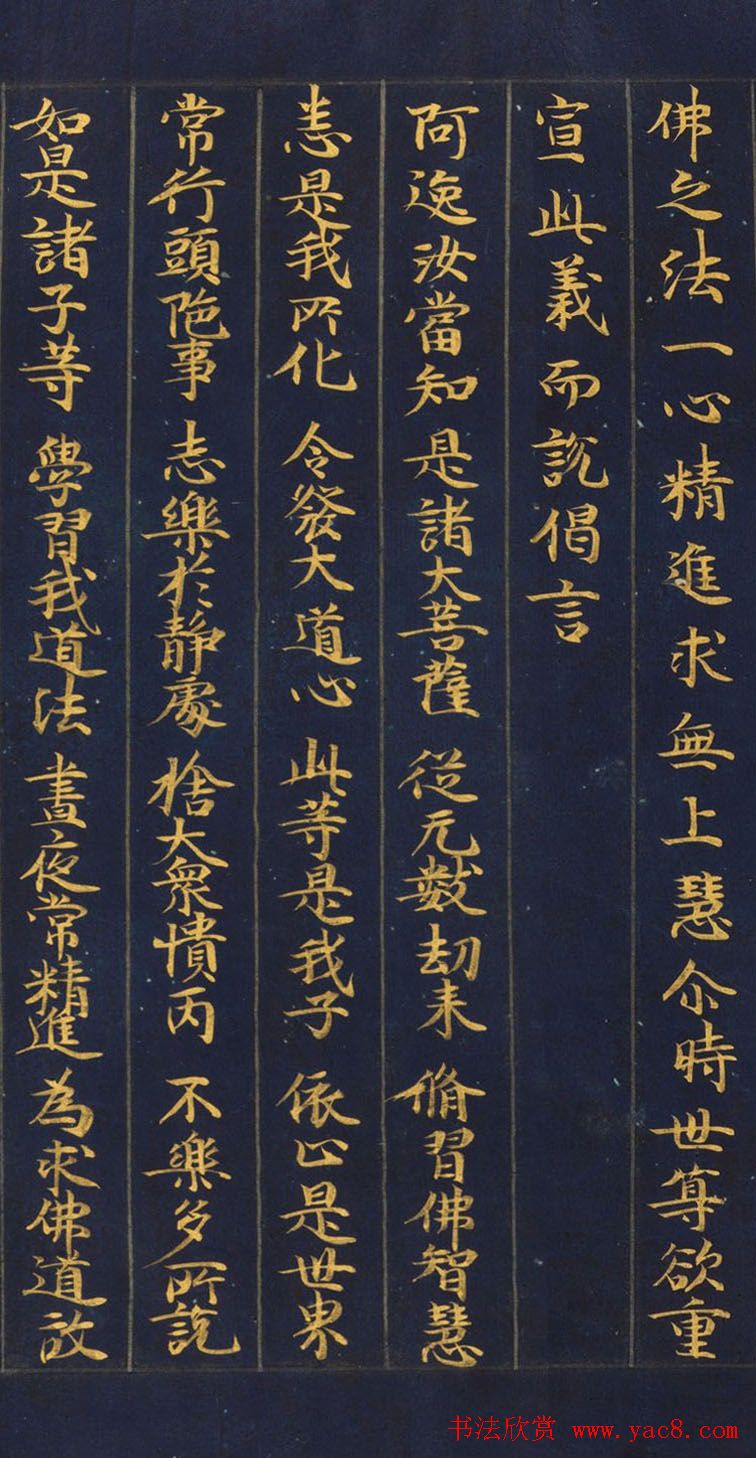 佛之法一心精進求無上慧尒時世尊欲重
宣此義而說偈言
阿逸汝當知 是諸大菩薩 從元數劫来 脩習佛智慧
悉是我所化 令發大道心 此等是我子 依止是世界
常行頭陁事 志樂於静處 捨大衆憒丙 不樂多所說
如是諸子等 學習我道法 晝夜常精進 為求佛道故
书法欣赏 www.yac8.com